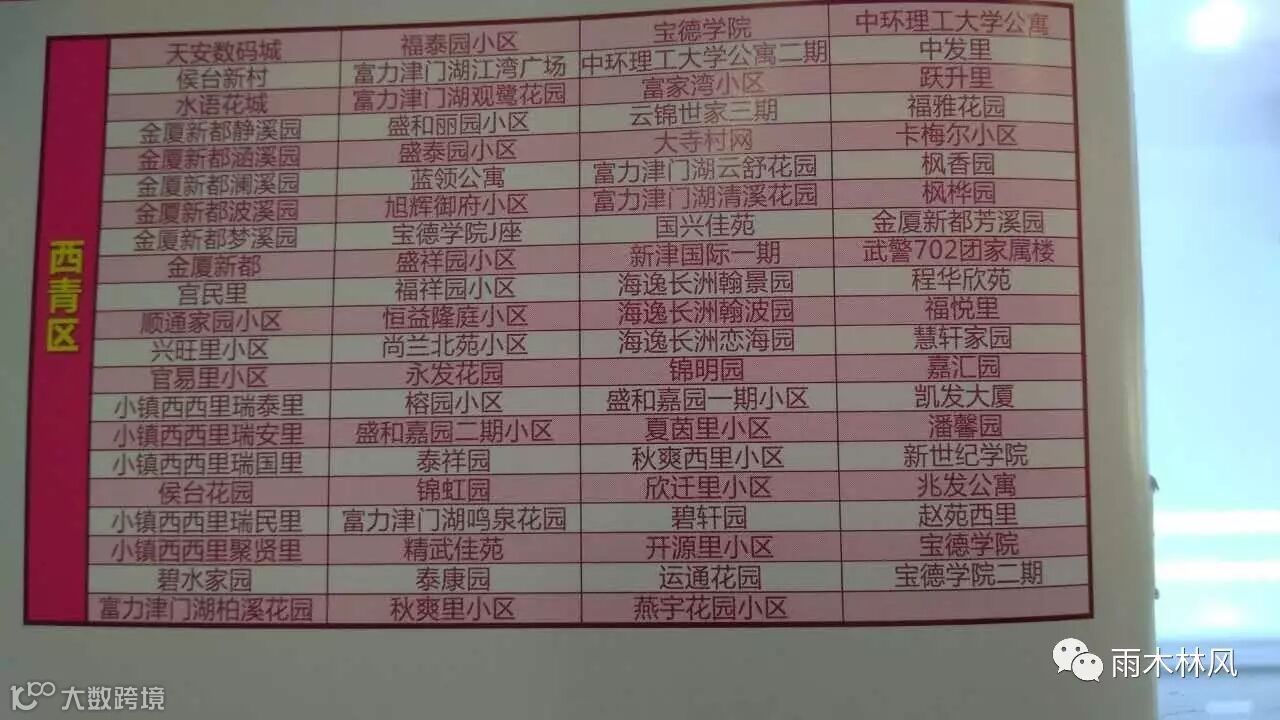 西青区
天安数码城 福泰园小区 宝德学院 中环理工大学公寓
侯台新村 富力津门湖江湾广场 中环理工大学公寓二期 中发里
水语花城 富力津门湖观鹭花园 富家湾小区 跃升里
金厦新都静溪园 盛和丽园小区 云锦世家三期 福雅花园
金厦新都涵溪园 盛泰园小区 大寺村网 卡梅尔小区
金厦新都澜溪园 蓝领公寓 富力津门湖云舒花园 枫香园
金厦新都波溪园 旭辉御府小区 富力津门湖清溪花园 枫桦园
金厦新都梦溪园 宝德学院J座 国兴佳苑 金厦新都芳溪园
金厦新都 盛祥园小区 新津国际一期 武警702团家属楼
宫民里 福祥园小区 海逸长洲翰景园 程华欣苑
顺通家园小区 恒益隆庭小区 海逸长洲翰波园 福悦里
兴旺里小区 尚兰北苑小区 海逸长洲恋海园 慧轩家园
官易里小区 永发花园 锦明园 嘉汇园
小镇西西里瑞泰里 榕园小区 盛和嘉园一期小区 凯发大厦
小镇西西里瑞安里 盛和嘉园二期小区 夏茵里小区 潘馨园
小镇西西里瑞国里 泰祥园 秋爽西里小区 新世纪学院
侯台花园 锦虹园 欣迁里小区 兆发公寓
小镇西西里瑞民里 富力津门湖鸣泉花园 碧轩园 赵苑西里
小镇西西里聚贤里 精武佳苑 开源里小区 宝德学院
碧水家园 泰康园 运通花园 宝德学院二期
富力津门湖柏溪花园 秋爽里小区 燕宇花园小区
雨木林风
大数跨境